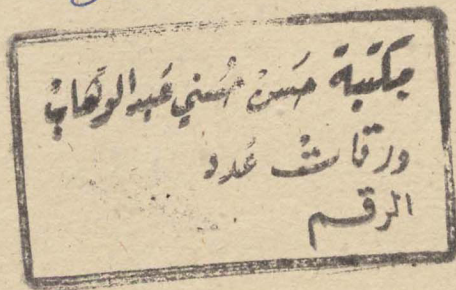 مكتبة حسن حسني عبد الوهاب
ورقات عدد
الرقم